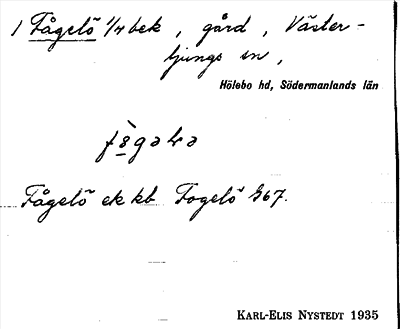 1 Fågelö 1/4 bek, gård, Väster-
ljungs sn,
Hölebo hd, Södermanlands län
Fågelö ek kb Fogelö 367.
KARL-ELIS NYSTEDT 1935